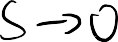 S → 0